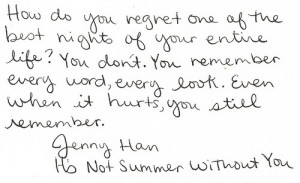 How do you regret one of the
best nights of your entire
life? You don't. You remember
every word, every look. Even
when it hurts, you still
remember.
Jenny Han
It's Not Summer Without You